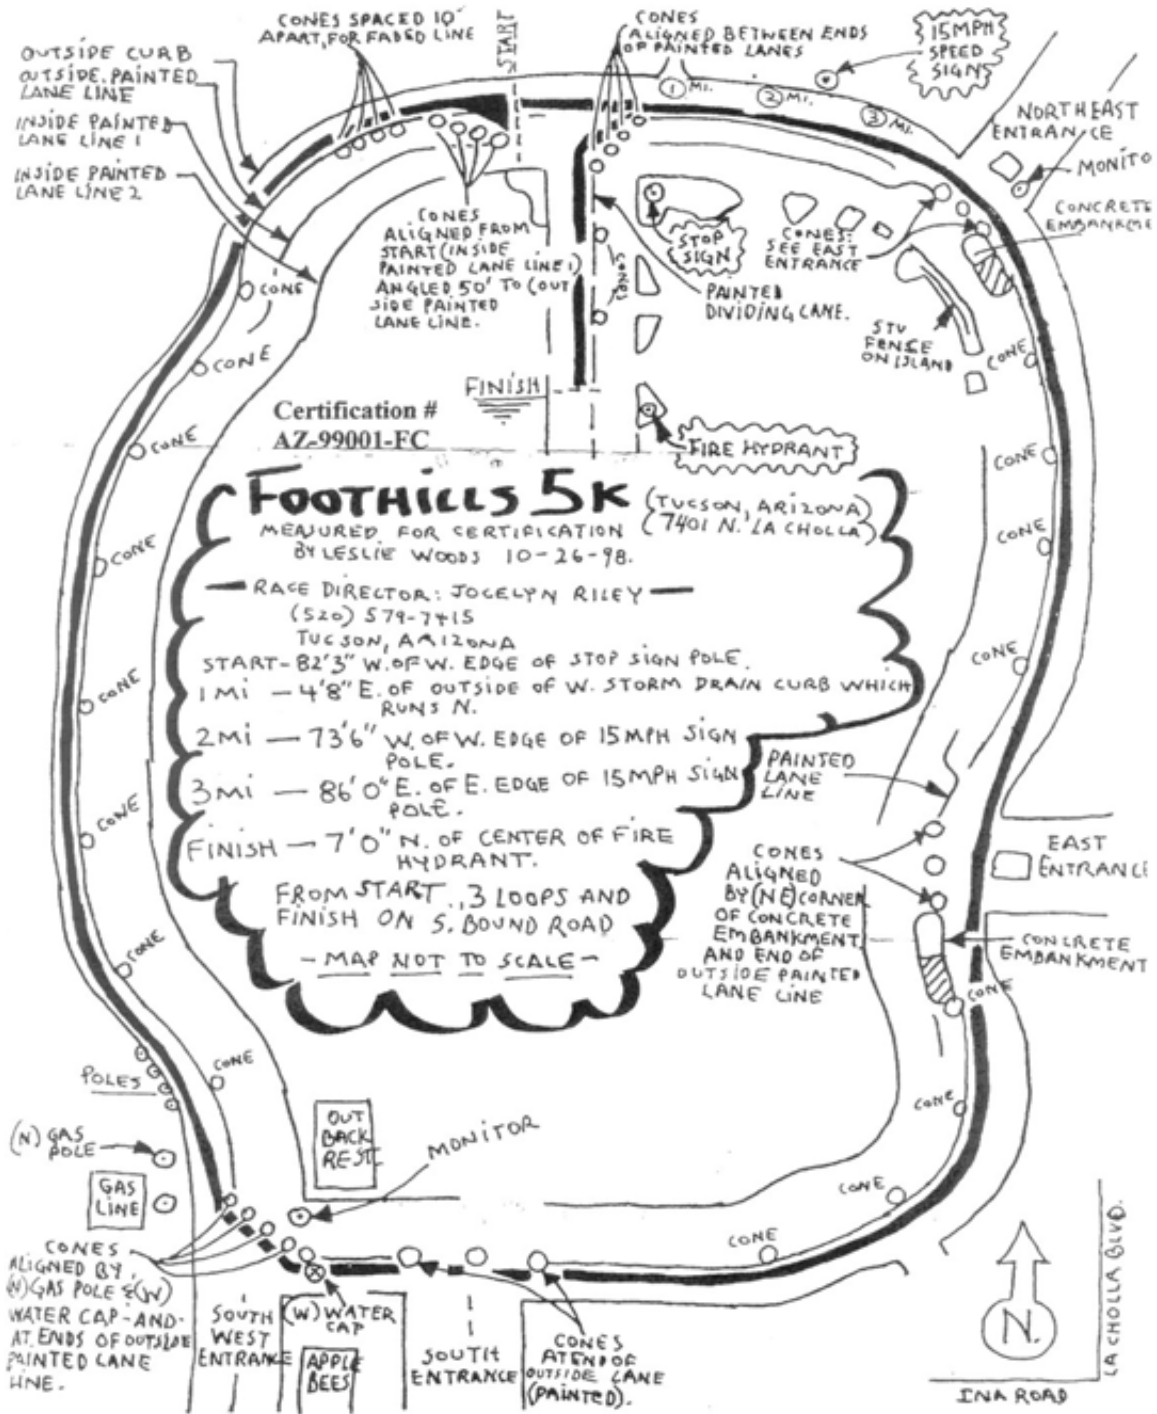 CONES SPACED 10'
APART, FOR FADED LINE
START
CONES
ALIGNED BETWEEN ENDS
OF PAINTED LANES
15MPH
SPEED
SIGN
OUTSIDE CURB
OUTSIDE PAINTED
LANE LINE
INSIDE PAINTED
LANE LINE 1
INSIDE PAINTED
LANE LINE 2
1 MI.
2 MI.
3 MI.
NORTHEAST
ENTRANCE
MONITO
CONCRETE
EMBANKME
CONES
ALIGNED FROM
START (INSIDE
PAINTED LANE LINE 1)
ANGLED 50' TO (OUT
SIDE PAINTED
LANE LINE.
STOP
SIGN
CONES:
SEE EAST
ENTRANCE
CONES
PAINTED
DIVIDING LANE.
FENCE
ON ISLAND
CONE
CONE
CONE
FINISH
Certification #
AZ-99001-FC
FIRE HYDRANT
CONE
CONE
FOOTHILLS 5K
(TUCSON, ARIZONA)
(7401 N. LA CHOLLA)
MEASURED FOR CERTIFICATION
BY LESLIE WOODS 10-26-98.
CONE
CONE
RACE DIRECTOR: JOCELYN RILEY
(520) 579-7415
TUCSON, ARIZONA
START - 82'3" W. OF W. EDGE OF STOP SIGN POLE.
CONE
CONE
1 MI - 4'8" E. OF OUTSIDE OF W. STORM DRAIN CURB WHICH
RUNS N.
2 MI - 73'6" W. OF W. EDGE OF 15MPH SIGN
POLE.
3 MI - 86'0" E. OF E. EDGE OF 15MPH SIGN
POLE.
FINISH - 7'0" N. OF CENTER OF FIRE
HYDRANT.
FROM START, 3 LOOPS AND
FINISH ON S. BOUND ROAD
- MAP NOT TO SCALE -
PAINTED
LANE
LINE
CONE
EAST
ENTRANCE
CONES
ALIGNED
BY (NE) CORNER
OF CONCRETE
EMBANKMENT
AND END OF
OUTSIDE PAINTED
LANE LINE
CONCRETE
EMBANKMENT
CONE
CONE
CONE
POLES
CONE
(N) GAS
POLE
GAS
LINE
OUT
BACK
REST.
MONITOR
CONE
CONE
CONES
ALIGNED BY
(N) GAS POLE & (W)
WATER CAP - AND -
AT ENDS OF OUTSIDE
PAINTED LANE
LINE.
SOUTH
WEST
ENTRANCE
(W) WATER
CAP
APPLE
BEES
SOUTH
ENTRANCE
CONES
AT END OF
OUTSIDE LANE
(PAINTED).
N.
LA CHOLLA BLVD.
INA ROAD